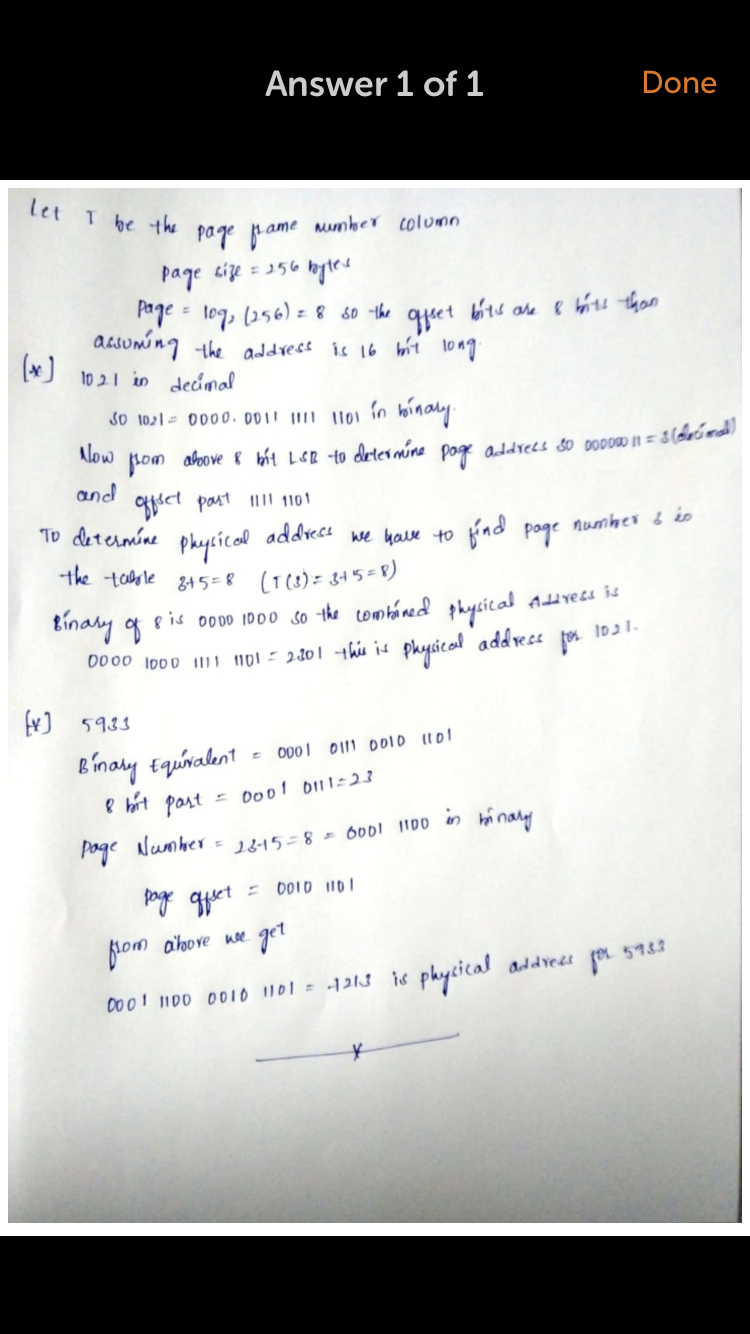 Answer 1 of 1
Done
Let T be the page frame number column
page size = 256 bytes
Page = log₂ (256) = 8 so the offset bits are 8 bits than
assuming the address is 16 bit long.
[x] 1021 in decimal
so 1021 = 0000. 0011 1111 1101 in binary.
Now from above 8 bit LSB to determine page address so 00000011 = 3 (decimal)
and offset part 1111 1101
To determine physical address we have to find page number 3 in
the table 3+5=8 (T(3) = 3+5=8)
Binary of 8 is 0000 1000 so the combined physical Address is
0000 1000 1111 1101 = 2301 this is physical address for 1021.
5933
Binary Equivalent = 0001 0111 0010 1101
8 bit part = 0001 0111 = 23
page Number = 23+5=8 = 0001 1100 in binary
page offset = 0010 1101
from above we get
0001 1100 0010 1101 = is physical address for 5933
x